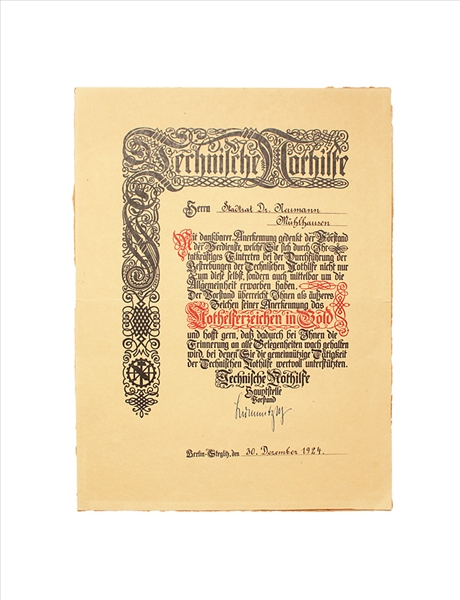 Technische Nothilfe
Herrn Stadtrat Dr. Neumann
Mühlhausen
Mit dankbarer Anerkennung gedenkt der Vorstand
der Verdienste, welche Sie sich durch Ihr
tatkräftiges Eintreten bei der Durchführung der
Bestrebungen der Technischen Nothilfe nicht nur
um diese selbst, sondern auch mittelbar um die
Allgemeinheit erworben haben.
Der Vorstand überreicht Ihnen als äußeres
Zeichen seiner Anerkennung das
Nothelferzeichen in Gold
und hofft gern, daß dadurch bei Ihnen die
Erinnerung an alle Gelegenheiten wach gehalten
wird, bei denen Sie die gemeinnützige Tätigkeit
der Technischen Nothilfe wertvoll unterstützten.
Technische Nothilfe
Hauptstelle
Vorstand
Berlin-Steglitz, den 30. Dezember 1924.